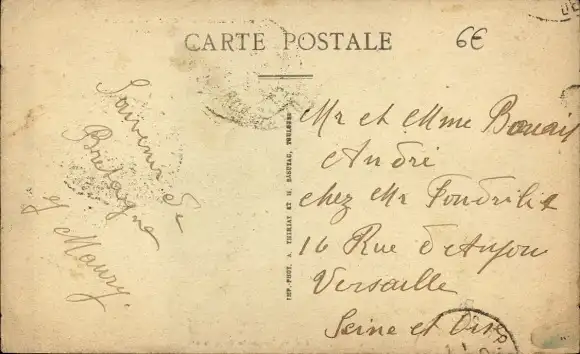 CARTE POSTALE
6€
Souvenir de
Bretagne
Maury
IMP.-PHOT. A. THIRIAT ET H. BASUYAU, TOULOUSE
Mr et Mme
André
chez Mr
16 Rue d'Anjou
Versaille
Seine et Oise